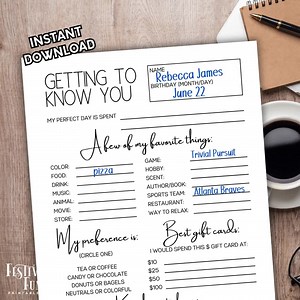 INSTANT
DOWNLOAD
GETTING TO
KNOW YOU
NAME
Rebecca James
BIRTHDAY (MONTH/DAY)
June 22
MY PERFECT DAY IS SPENT
A few of my favorite things:
COLOR:
FOOD: pizza
DRINK:
MUSIC:
ANIMAL:
MOVIE:
STORE:
GAME: Trivial Pursuit
HOBBY:
SCENT:
AUTHOR/BOOK:
SPORTS TEAM: Atlanta Braves
RESTAURANT:
WAY TO RELAX:
My preference is:
(CIRCLE ONE)
TEA OR COFFEE
CANDY OR CHOCOLATE
DONUTS OR BAGELS
NEUTRALS OR COLORFUL
Best gift cards:
I WOULD SPEND THIS $ GIFT CARD AT:
$10
$25
$50
$100